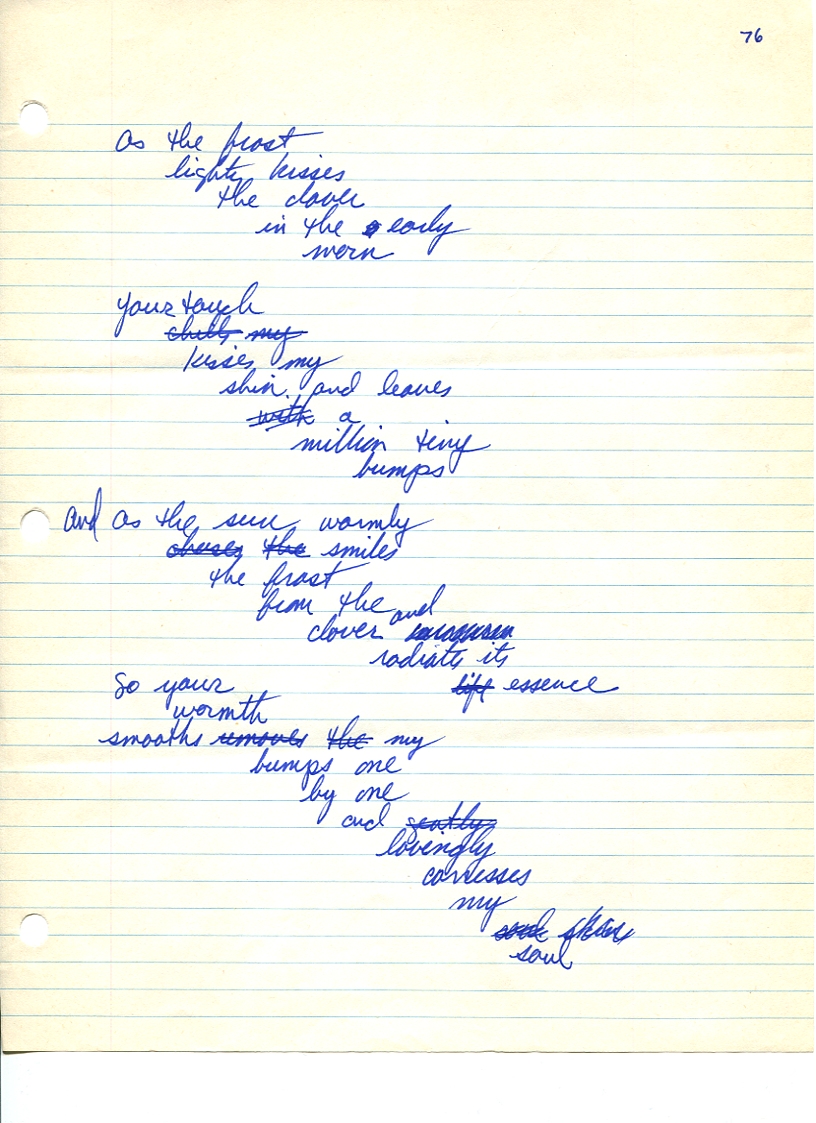 76
As the frost
lightly kisses
the clover
in the early
morn
your touch
chills my
kisses my
skin and leaves
with a
million tiny
bumps
And as the sun warmly
chases the smiles
the frost
from the and
clover
radiates its
life essence
So your
warmth
smooths removes the my
bumps one
by one
and gently
lovingly
carresses
my
soul skin
soul